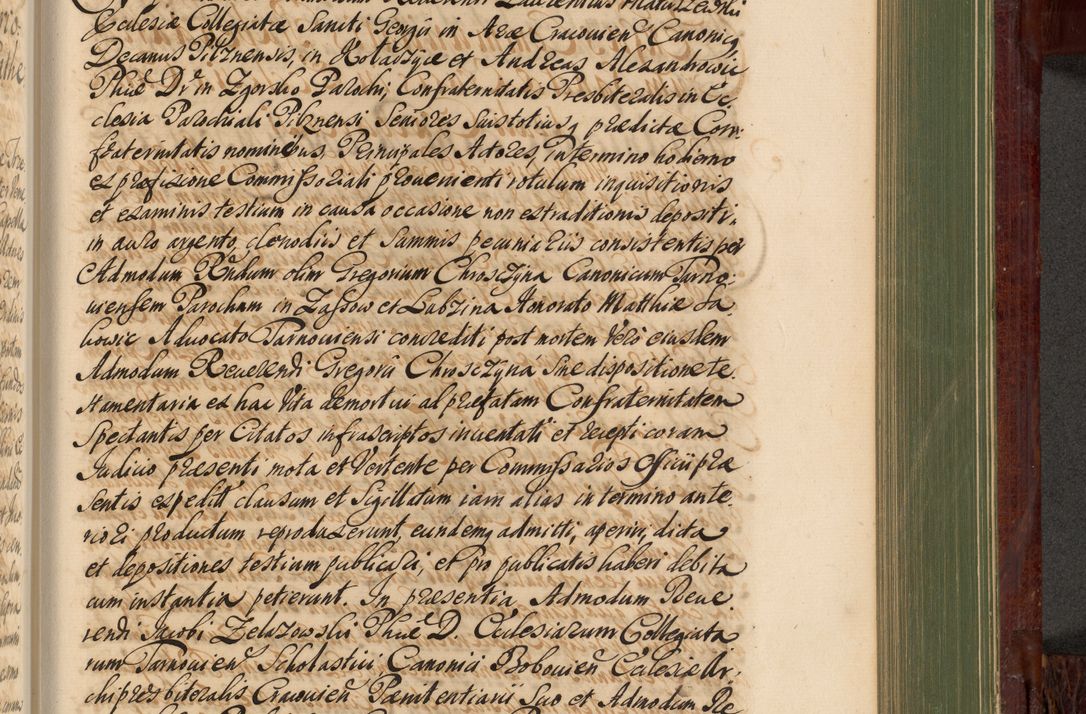 Ecclesiæ Collegiatæ Sancti Georgii in Arce Cracovien Canonicq
Decanus Pilznensis, in Kołaczyce et Andreas Alexandrowic
Phiæ Dr in Zgorsko Parochi, Confraternitatis Presbiteralis in Ec,
clesia Parochiali Pilznensi Seniores suis totiusq prædictæ Con,
fraternitatis nominibus Principales Actores, in termino hodierno
ex prosfixione Commissoriali provenienti rotulum inquisitionis
et examinis testium in causa occasione non extraditionis depositi,
in auro argento, clenodiis et summis pecuniariis consistentis per
Admodum Rndum olim Gregorium Chrosczyna Canonicum Tarno,
viensem Parochum in Zassow et Labzina Honorato Matthiæ Ja,
kowic Advocato Tarnoviensi concrediti post mortem verò eiusdem
Admodum Reverendi Gregorii Chrosczyna sine dispositione te,
stamentaria ex hac vita demortui ad præfatam Confraternitatem
spectantis per Citatos infrascriptos incentati et recepti coram
Judicio præsenti mota et vertente per Commissarios Officii præ
sentis expeditt clausum et sigillatum iam alias in termino ante,
riori productum reproduxerunt, eundemq admitti, aperiri, dicta
et depositiones testium publicari, et pro publicatis haberi debita
cum instantia petierunt. In præsentia Admodum Reve,
rendi Jacobi Zelazowski Phiæ D. Ecclesiarum Collegiata
rum Tarnovien Scholastici Canonici Bobovien Ecclesiæ Ar,
chipresbiteralis Cracovien Pænitentiarii suo et Admodum Re